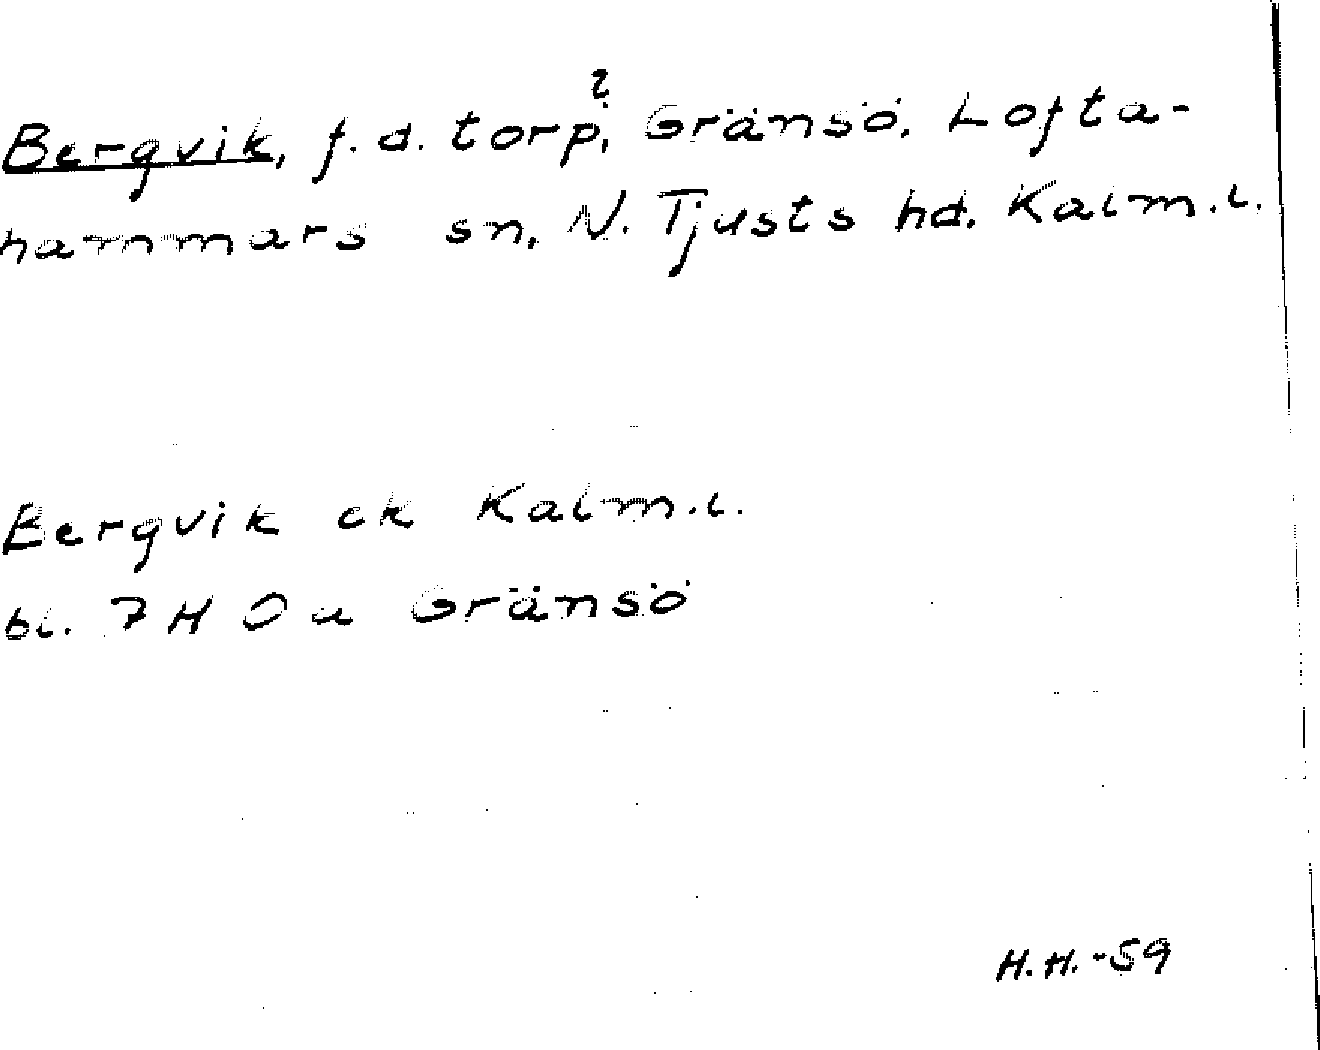 Bergvik, f.d. torp?, Gränsö, Lofta-
hammars sn, N. Tjusts hd. Kalm.l.
Bergvik ek Kalm.l.
bl. 7H 0u Gränsö
H.H.-59